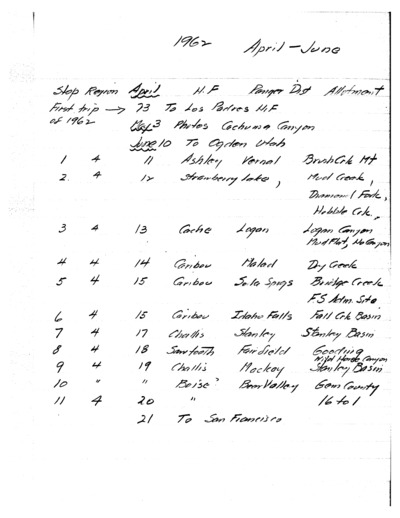 1962 April - June
Stop Region April N.F Ranger Dist Allotment
First trip → 23 To Los Padres N.F
of 1962 May 3 Photos Cachuma Canyon
June 10 To Ogden Utah
1 4 11 Ashley Vernal Brush Crk Mt
2 4 12 Strawberry Lake, Mud Creek,
Diamond Fork,
Hobble Crk.,
3 4 13 Cache Logan Logan Canyon
Mud Flat,
4 4 14 Caribou Malad Dry Creek
5 4 15 Caribou Soda Spngs Bridge Creek
FS Adm. Site
6 4 15 Caribou Idaho Falls Fall Crk Basin
7 4 17 Challis Stanley Stanley Basin
8 4 18 Sawtooth Fairfield Gooding
Canyon
9 4 19 Challis Mackay Stanley Basin
10 " " Boise? Bear Valley Gem County
11 4 20 " 16 to 1
21 To San Francisco